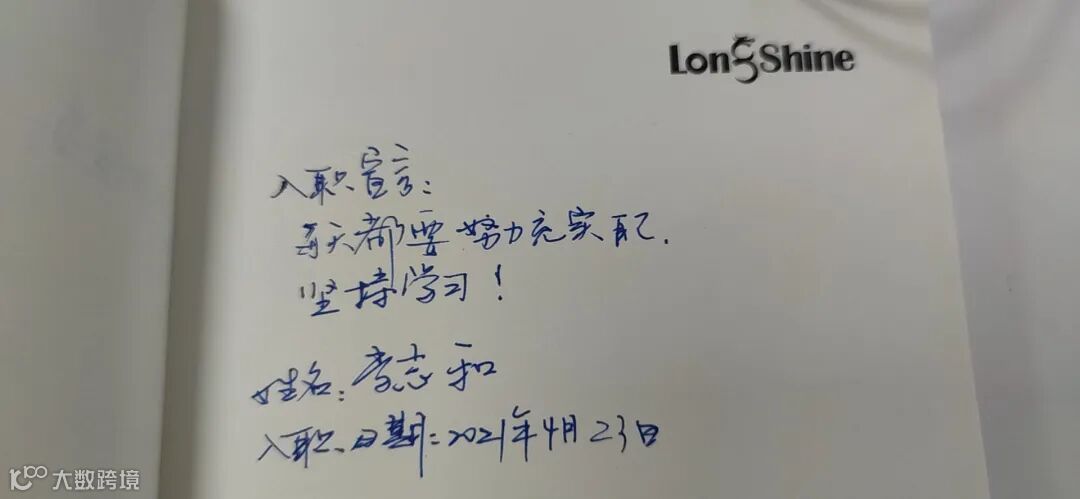 LongShine
入职宣言：
每天都要努力充实自己.
坚持学习！
姓名：李志和
入职日期：2021年4月23日
大数跨境